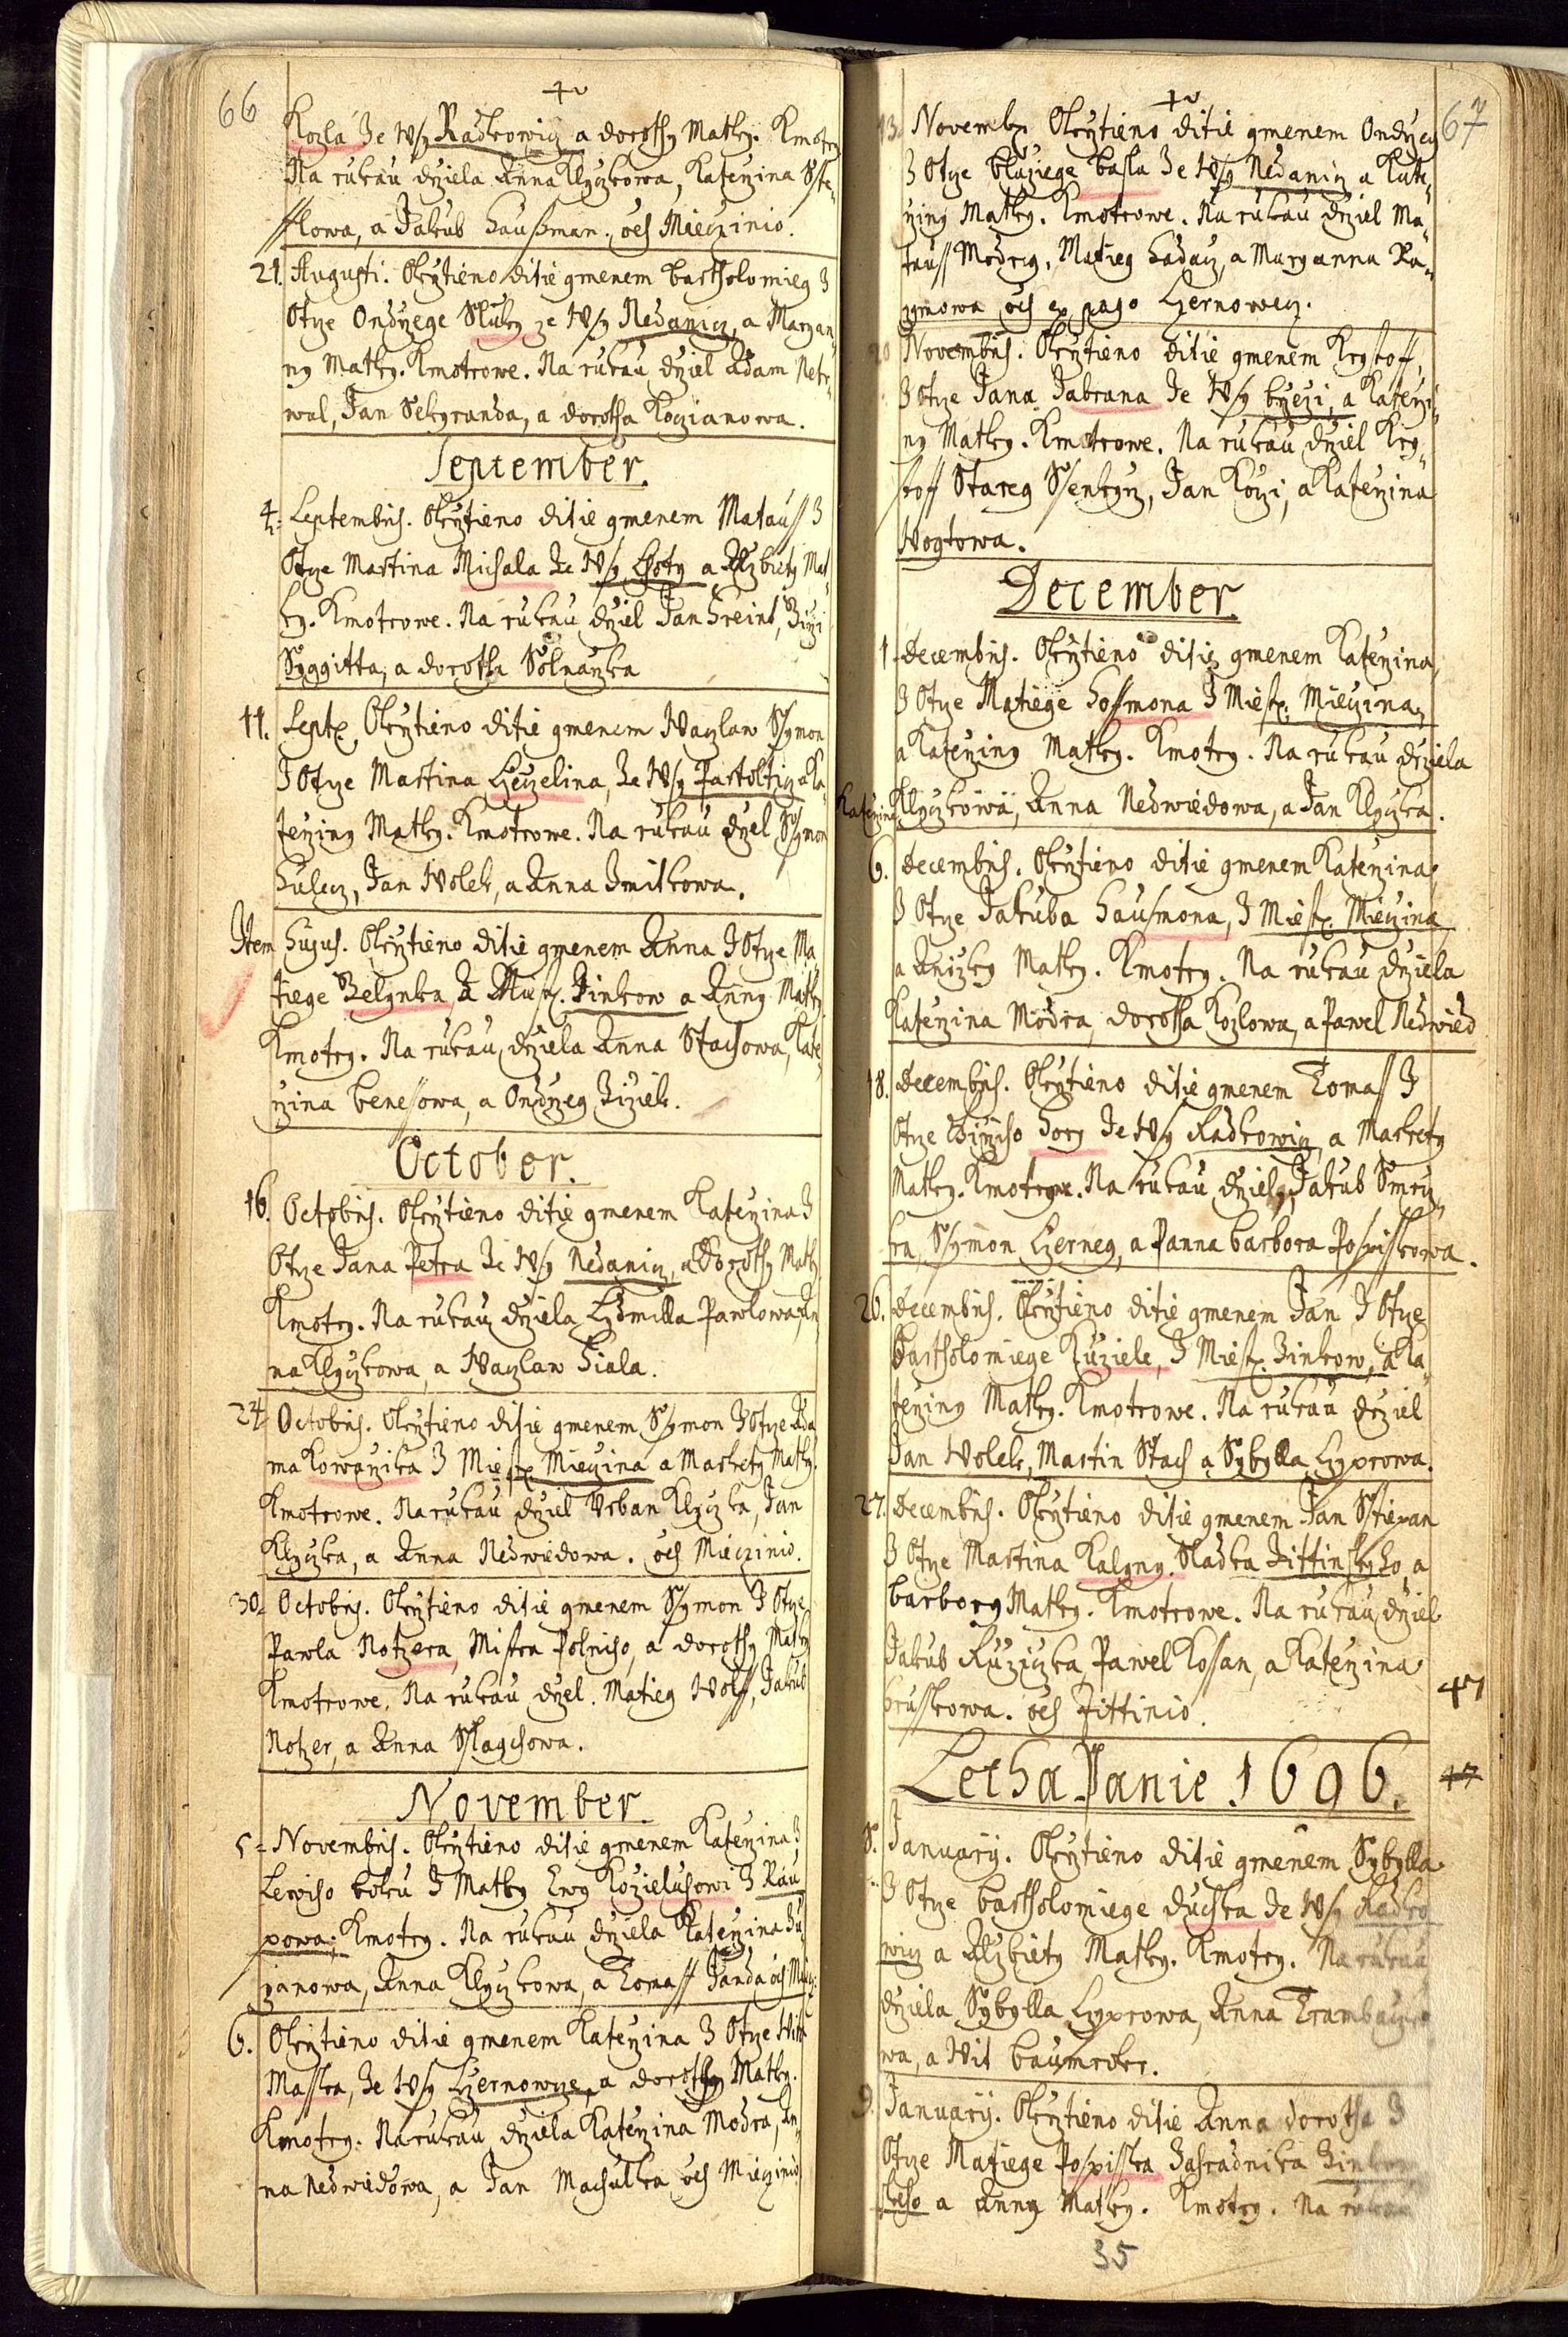 66
Kozla Ze Wsy Radkowicz a dorothy Matky. Kmotry
Na rukau držiela Anna Klyczkowa, Kateržina Sste„
fflowa, a Jakub Haussman. oēs Mieczinio.
21. Augusti. Okržtieno ditie gmenem bartholomieg Z
Otcze Ondržege Sluky ze Wsy Nedanicz, a Maryan„
ny Matky. Kmotrowe. Na rukau držiel Adam Netr„
wal, Jan Sekyranda, a dorotha Kocziánowa.
September.
4. Septembris. Okržtieno ditie gmenem Matauss Z
Otcze Martina Michala Ze Wsy Lhoty a Alzbiety Mat„
ky. Kmotrowe. Na rukau držiel Jan Hreint, Jirži
Syggitta, a dorotha Solnarzka
11. Septēr. Okržtieno ditie gmenem Waczlaw Ssymon
Z Otcze Martina Czeczelina, Ze Wsy Partolticz a Ka„
teržiny Matky. Kmotrowe. Na rukau držel Ssymon
Hulecz, Jan Wolek, a Anna Zmitkowa.
Item Hujus. Okržtieno ditie gmenem Anna Z Otcze Ma„
tiege Zelynka Z Miest. Zinkow a Anny Matky
Kmotry. Na rukau držiela Anna Stachowa, Kate„
ržina benessowa, a Ondržeg Zizielk.
October.
16. Octobris. Okržtieno ditie gmenem Kateržina Z
Otcze Jana Petra Ze Wsy Nedanicz, a Dorothy Matky.
Kmotry. Na rukau držiela Lidmilla Pawlowa, An„
na Klyczkowa, a Waczlaw Fiala.
24. Octobris. Okržtieno ditie gmenem Ssymon Z Otcze Ada„
ma Kowaržika Z Miest. Mieczina a Markety Matky.
Kmotrowe. Na rukau držiel Urban Klyczka, Jan
Klyczka, a Anna Nedwiedowa. oēs Mieczinio.
30. Octobris. Okržtieno ditie gmenem Ssymon Z Otcze
Pawla Notzera, Mistra Polniho, a dorothy Matky
Kmotrowe. Na rukau držel. Matieg Wolff, Jakub
Notzer, a Anna Sslagchowa.
November.
5. Novembris. Okržtieno ditie gmenem Kateržina Z
Lewiho boku Z Matky Ewy Kozieluhowi Z Rau„
powa. Kmotry. Na rukau držiela Kateržina Zu„
zanowa, Anna Klyczkowa, a Tomass Janda oēs Miecz:
6. Okržtieno ditie gmenem Kateržina Z Otcze Wita
Masska, Ze Wsy Czernowcze, a dorothy Matky.
Kmotry. Na rukau držiela Kateržina Modra, An„
na Nedwiedowa, a Jan Machulka oēs Mieczinio
67
13. Novembr. Okržtieno ditie gmenem Ondržeg
Z Otcze blažiege bassa Ze Wsy Nedanicz a Kate„
ržiny Matky. Kmotrowe. Na rukau držiel Ma„
tauss Modrey, Matieg Hadacz, a Maryanna Ra„
zymowa oēs ex pago Czernowcy.
20 Novembris. Okržtieno ditie gmenem Krystoff,
Z Otcze Jana Jabrana Ze Wsy bržezi, a Katerži„
ny Matky. Kmotrowe. Na rukau držiel Kry„
stoff Starey Ssenkyrz, Jan Kozi, a Kateržina
Wogtowa.
December.
1. decembris. Okržtieno ditie gmenem Kateržina,
Z Otcze Matiege Hossmona Z Miest. Mieczina,
a Kateržiny Matky. Kmotry. Na rukau držiela
Kateržina Klyczkowa, Anna Nedwiedowa, a Jan Klyczka.
6. decembris. Okržtieno ditie gmenem Kateržina
Z Otcze Jakuba Hausmona, Z Miest. Mieczina
a Anižky Matky. Kmotry. Na rukau držiela
Kateržina Modra, dorotha Kozlowa, a Pawel Nedwied
18. decembris. Okržtieno ditie gmenem Tomass Z
Otcze Giržiho Hory Ze Wsy Radkowicz a Markety
Matky. Kmotrowe. Na rukau držiel, Jakub Smrcz„
ka, Ssymon Czerney, a Panna barbora Pospisskowa.
26. decembris. Okržtieno ditie gmenem Jan Z Otcze
bartholomiege Kuziele, Z Miest. Zinkow, a Ka„
teržiny Matky. Kmotrowe. Na rukau držiel
Jan Wolek, Martin Stach a Sybylla Cyprowa.
27. decembris. Okržtieno ditie gmenem Jan Sstiepan
Z Otcze Martina Kalyny. Sladka Zittinskyho, a
barbory Matky. Kmotrowe. Na rukau držiel
Jakub Ružiczka, Pawel Kossan, a Kateržina
brusskowa. oēs Zittinio.
47
Letha Panie 1696.
47
8. Januarij. Okržtieno ditie gmenem Sybylla
Z Otcze bartholomiege duchka Ze Wsy Radko
wicz a Alzbiety Matky. Kmotry. Na rukau
držiela Sybylla Cyprowa, Anna Trambaurzo
wa, a Wit baumrker.
9. Januarij. Okržtieno ditie Anna dorotha Z
Otcze Matiege Pospisska Zahradnika Zinkow
skeho a Anny Matky. Kmotry. Na rukau
35